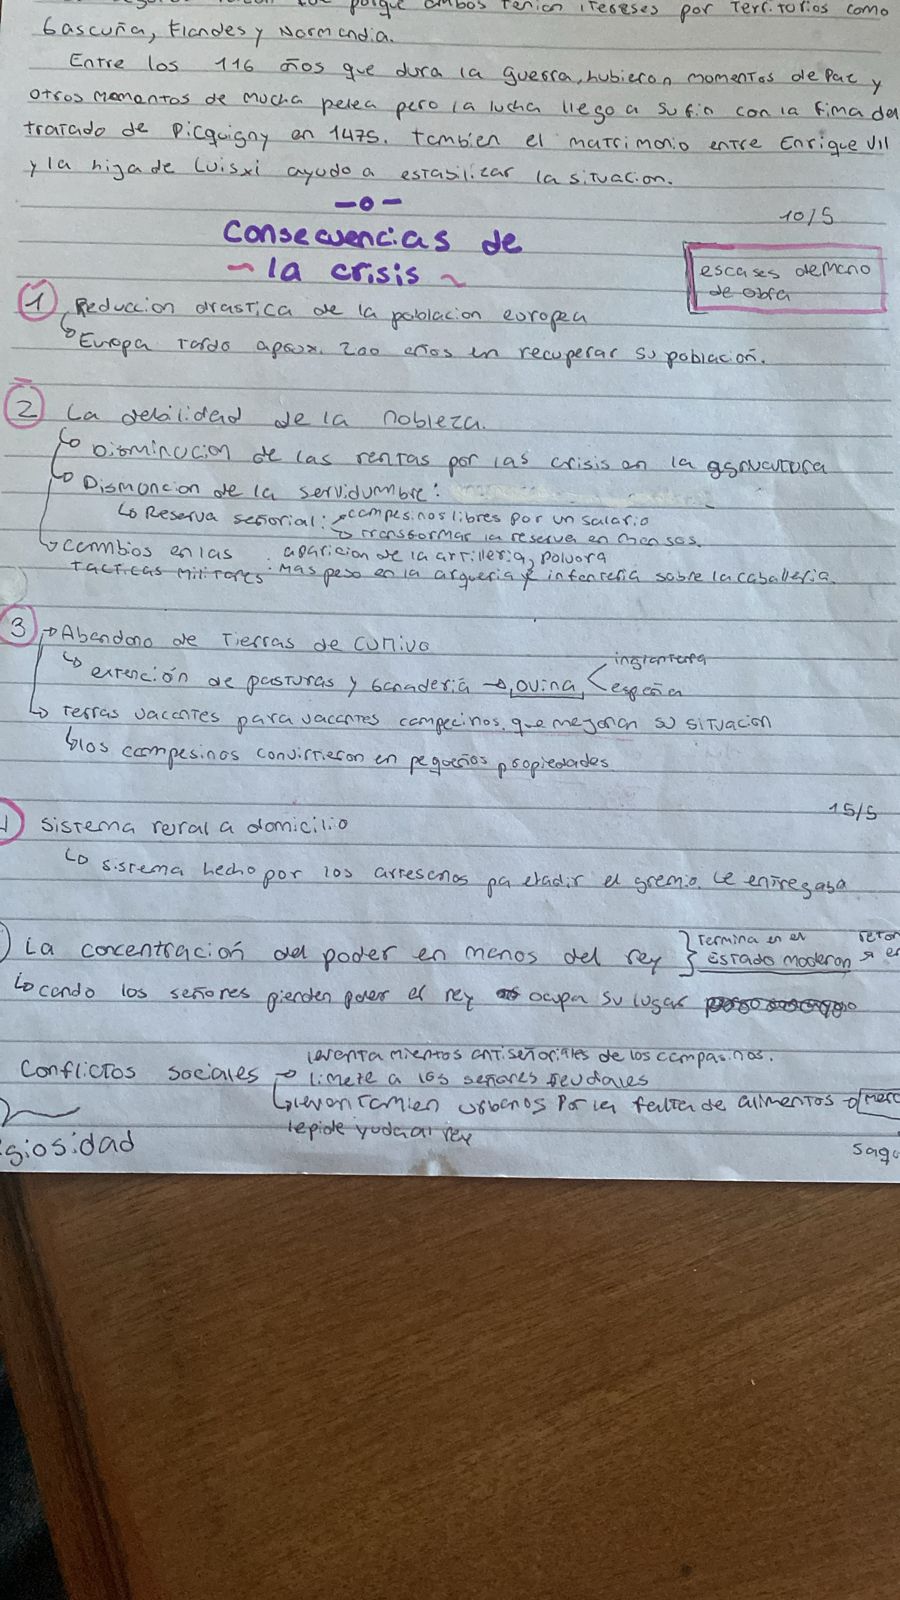 porque ambos tenian itereses por territorios como
Gascuña, Flandes y Normandia.
Entre los 116 años que dura la guerra, hubieron momentos de Paz y
otros momentos de mucha pelea pero la lucha llego a su fin con la firma del
tratado de Picquigny en 1475. tambien el matrimonio entre Enrique VII
y la hija de Luisxi ayudo a estabilizar la situacion.
10/5
Consecuencias de
la crisis
escases demano
de obra
1 Reduccion drastica de la poblacion europea
Europa tardo aprox. 200 años en recuperar su población.
2 La debilidad de la nobleza.
Disminucion de las rentas por las crisis en la
Dismoncion de la servidumbre:
Reserva señorial: campesinos libres por un salario
transformar la reserva en mansos.
cambios en las aparicion de la artilleria, polvora
tacticas militares: mas peso en la arqueria y infanteria sobre la caballeria.
3 Abandono de tierras de cultivo
inglanterra
extención de pasturas y ganaderia → ovina
españa
terras vacantes para vacantes campecinos. que mejoran su situacion
los campesinos convirtieron en pequeños propiedades
15/5
sistema rural a domicilio
sistema hecho por los artesanos pa evadir el gremio. Le entregaba
La concentración del poder en manos del rey } termina en el
Estado moderon
cando los señores pierden poder el rey ocupa su lugar
levanta mientos antiseñoriales de los campasinos.
Conflictos sociales → limete a los señores feudales
levantamien urbanos por la falta de alimentos → merc
le pide yuda al rey
giosidad